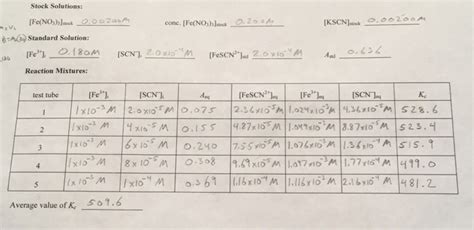 Stock Solutions:
[Fe(NO3)3]stock 0.00200M conc. [Fe(NO3)3]stock 0.200M [KSCN]stock 0.00200M
Standard Solution:
[Fe3+]i 0.180M [SCN-]i 2.0x10-4M [FeSCN2+]std 2.0x10-4M Astd 0.636
Reaction Mixtures:
test tube [Fe3+]i [SCN-]i Aeq [FeSCN2+]eq [Fe3+]eq [SCN-]eq Kc
1 1x10-3M 2.0x10-5M 0.075 2.36x10-5M 1.024x10-3M 4.36x10-5M 528.6
2 1x10-3M 4x10-5M 0.155 4.87x10-5M 1.049x10-3M 8.87x10-5M 523.4
3 1x10-3M 6x10-5M 0.240 7.55x10-5M 1.076x10-3M 1.36x10-4M 515.9
4 1x10-3M 8x10-5M 0.308 9.69x10-5M 1.097x10-3M 1.77x10-4M 499.0
5 1x10-3M 1x10-4M 0.369 1.16x10-4M 1.116x10-3M 2.16x10-4M 481.2
Average value of Kc 509.6